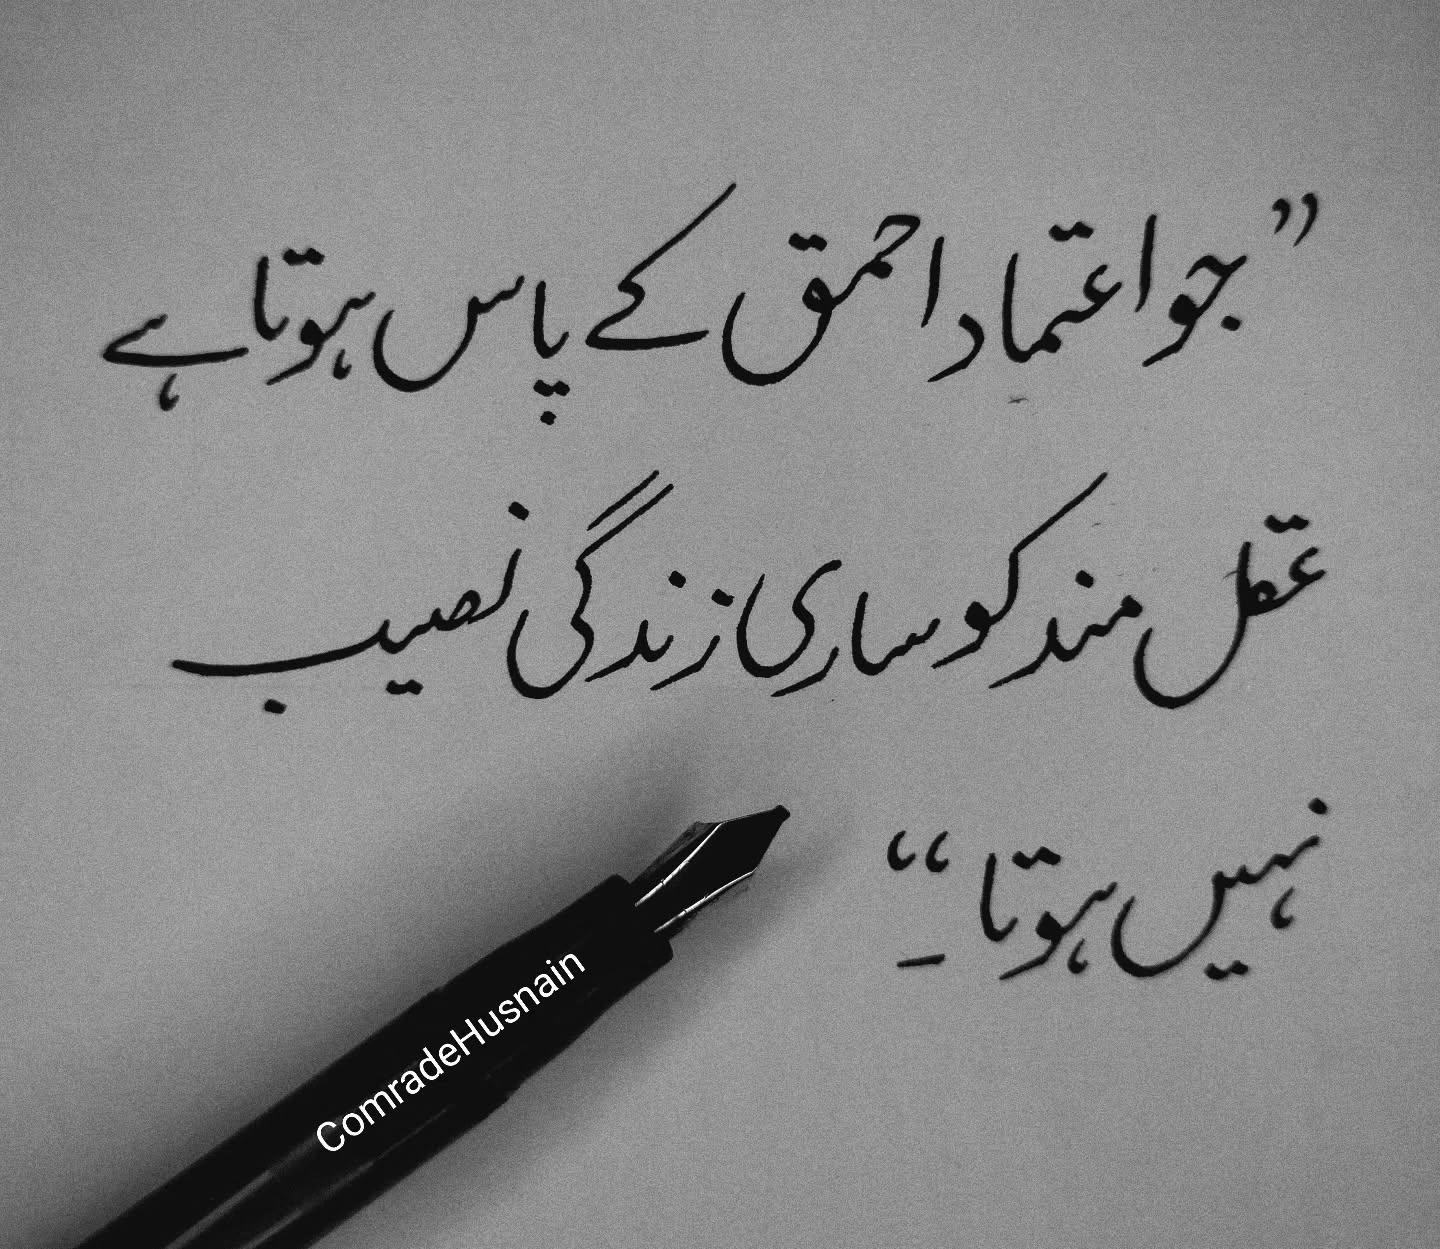 ”جو اعتماد احمق کے پاس ہوتا ہے
عقل مند کو ساری زندگی نصیب
نہیں ہوتا۔“
ComradeHusnain